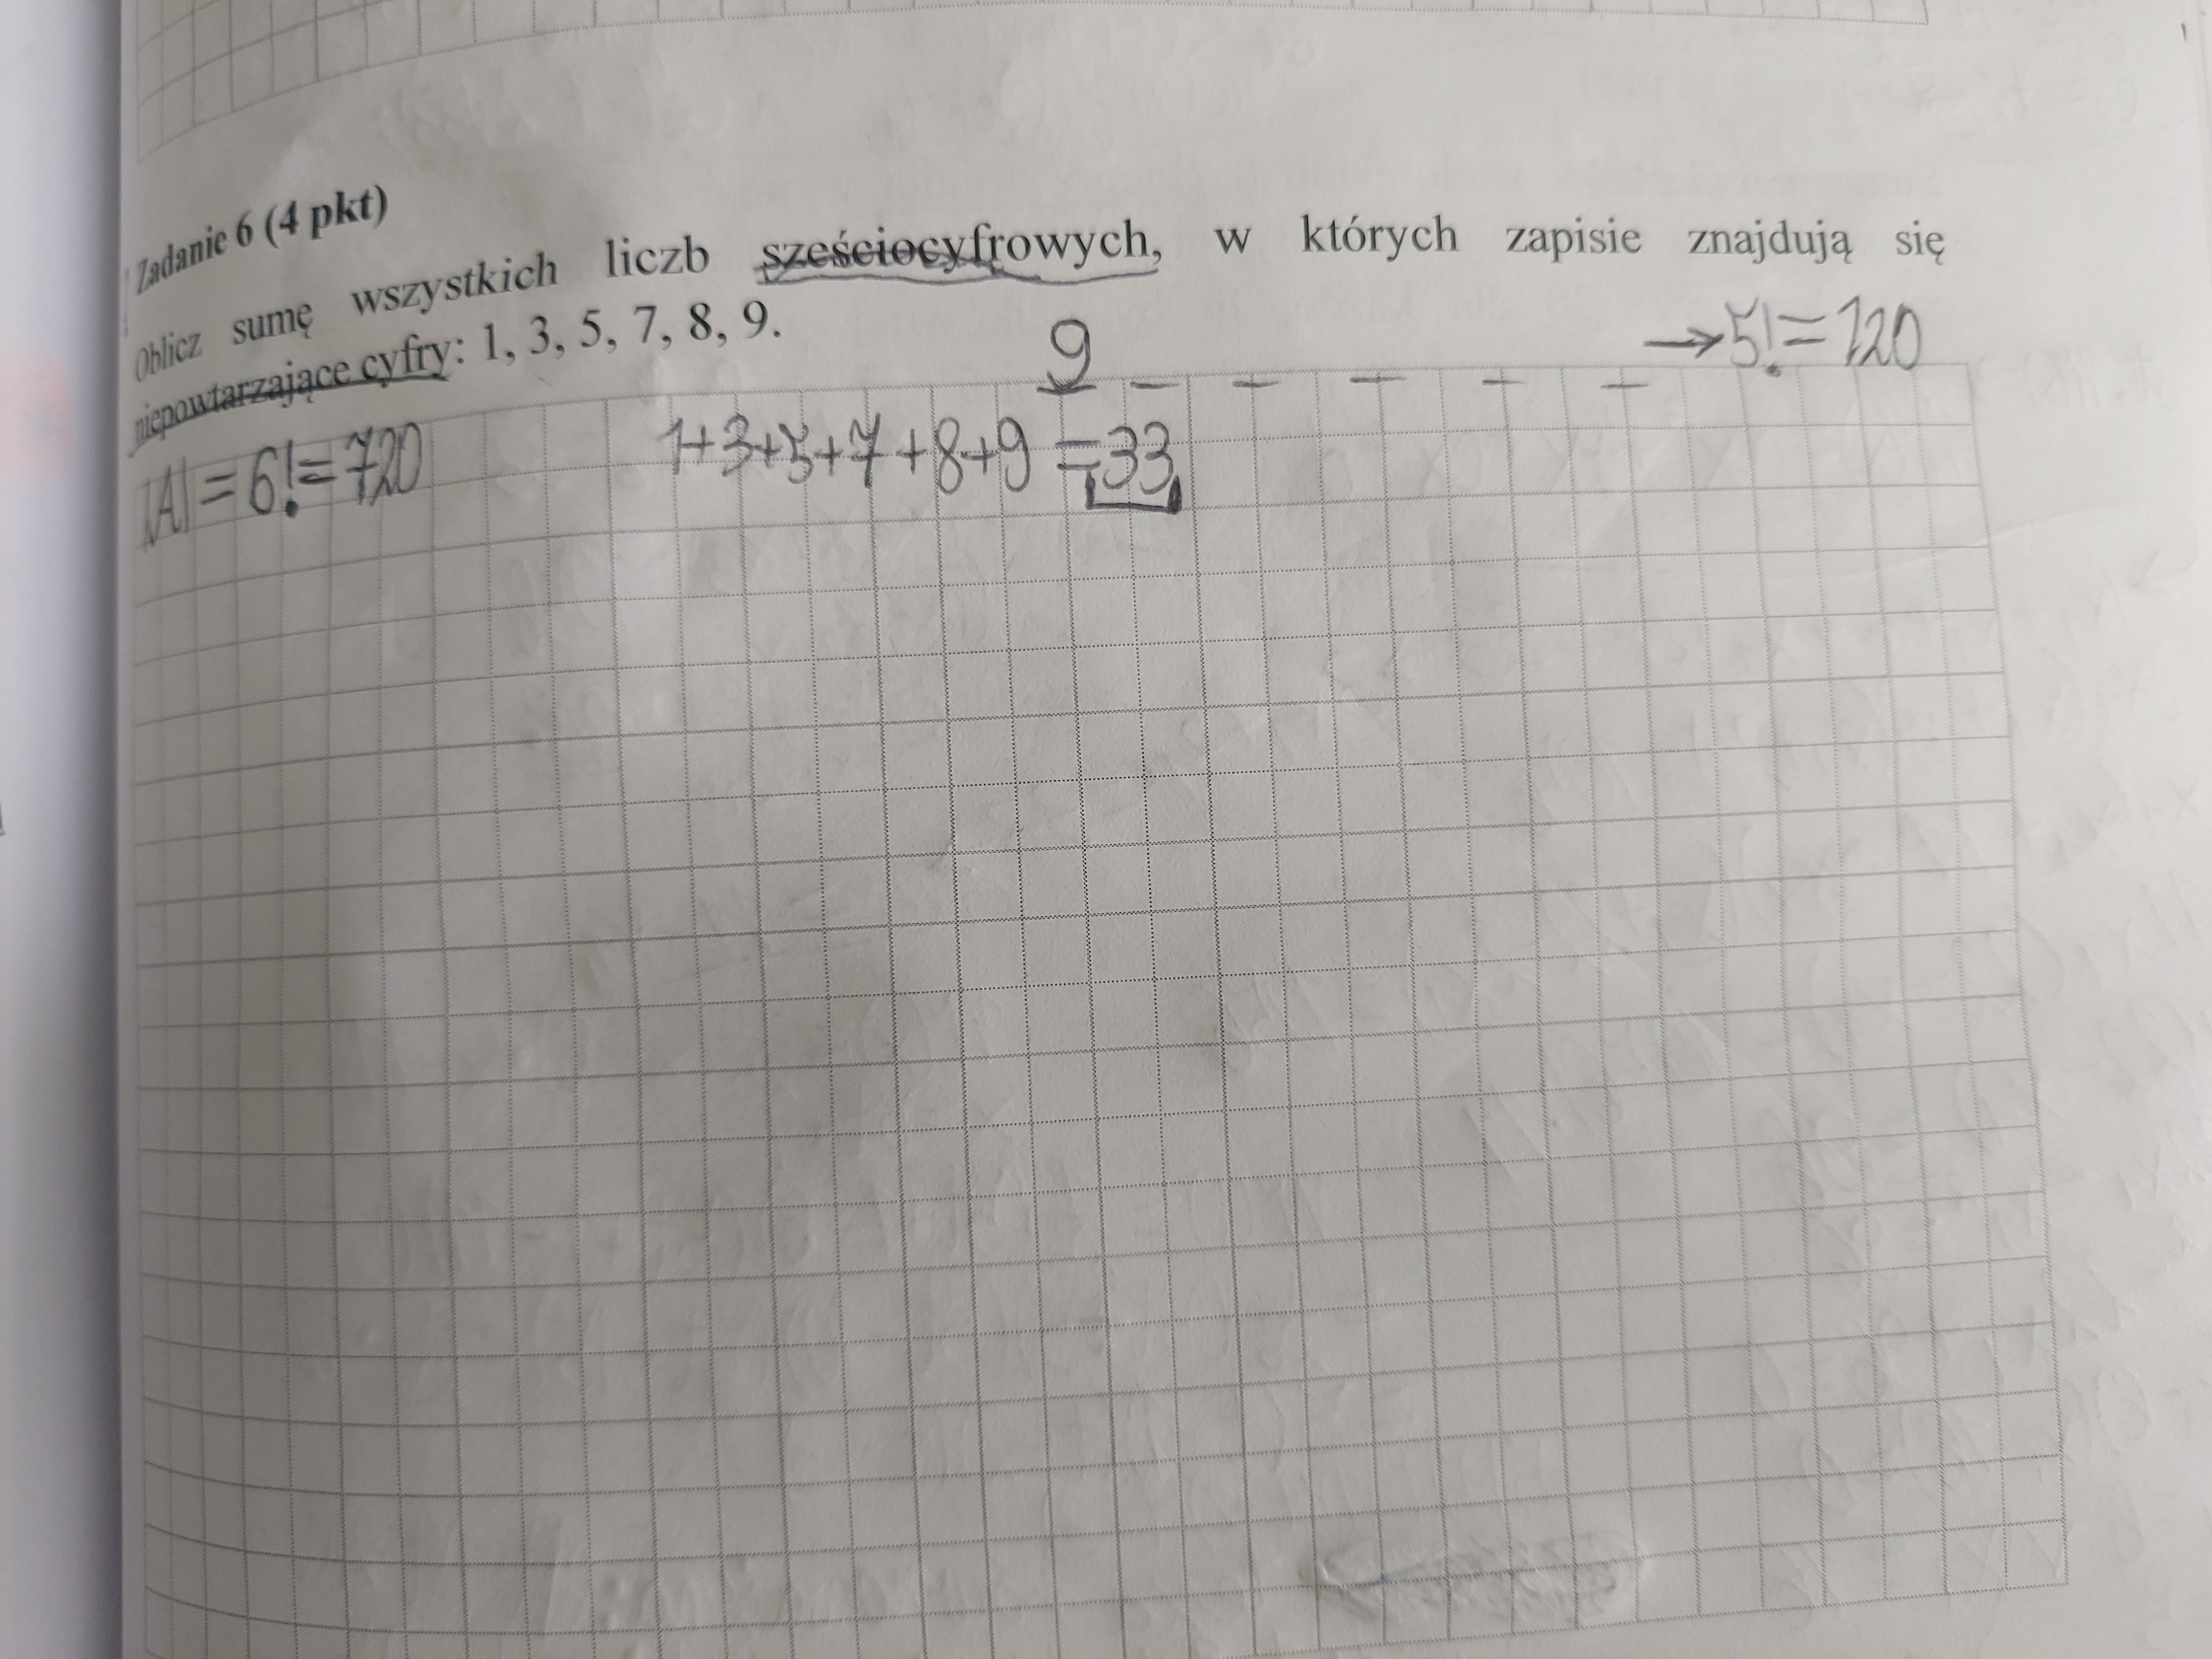 Zadanie 6 (4 pkt)
Oblicz sumę wszystkich liczb sześciocyfrowych, w których zapisie znajdują się
niepowtarzające cyfry: 1, 3, 5, 7, 8, 9.
9 _ _ _ _ _ → 5! = 120
|A| = 6! = 720 1+3+5+7+8+9 = 33